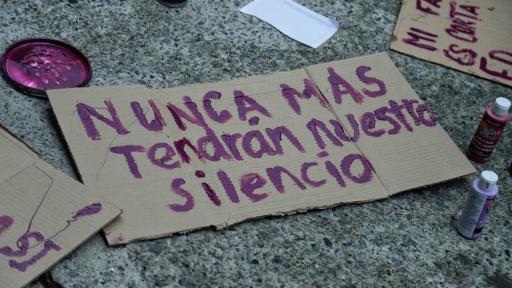 NUNCA MÁS
Tendrán nuestro
silencio
MI FA
ES CORTA